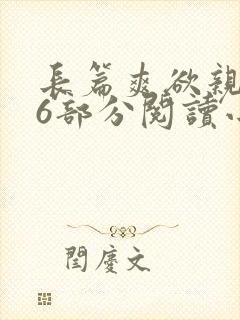 長篇爽欲親
6部分閱讀小
閆慶文